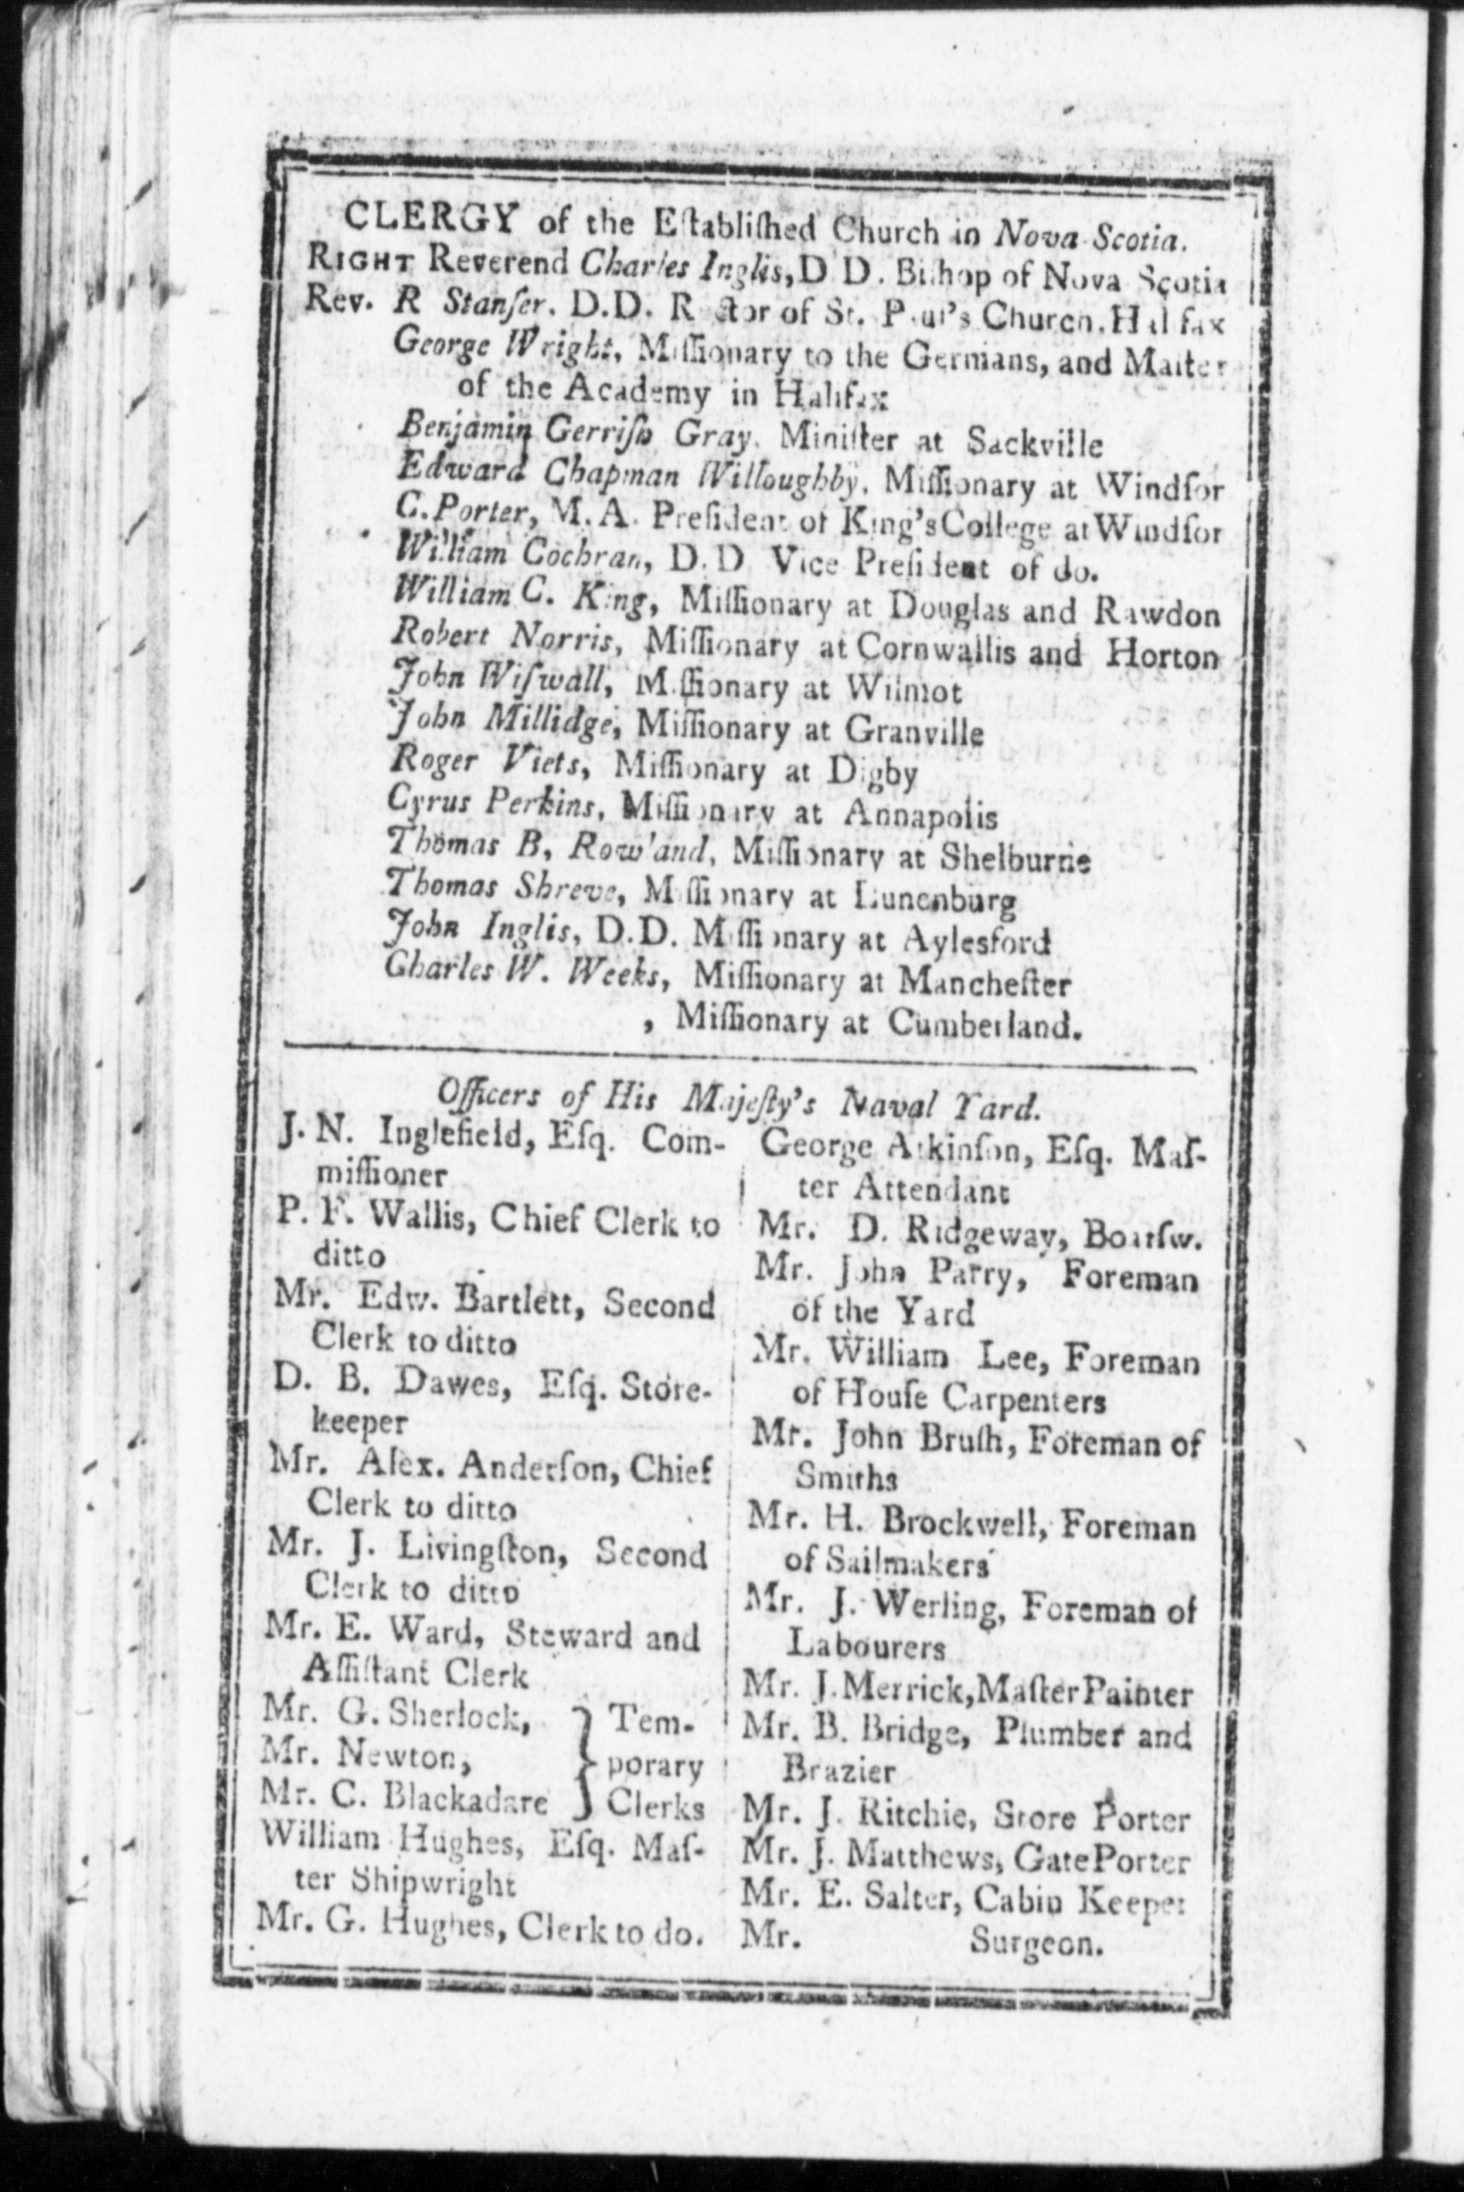 CLERGY of the Eſtabliſhed Church in Nova Scotia.
RIGHT Reverend Charles Inglis, D D. Biſhop of Nova Scotia
Rev. R Stanſer. D.D. Rector of St. Paul's Church, Halifax
George Wright, Miſſionary to the Germans, and Maſter
of the Academy in Halifax
Benjamin Gerriſh Gray. Miniſter at Sackville
Edward Chapman Willoughby, Miſſionary at Windſor
C. Porter, M. A. Preſident of King's College at Windſor
William Cochran, D. D Vice Preſident of do.
William C. King, Miſſionary at Douglas and Rawdon
Robert Norris, Miſſionary at Cornwallis and Horton
John Wiſwall, Miſſionary at Wilmot
John Millidge, Miſſionary at Granville
Roger Viets, Miſſionary at Digby
Cyrus Perkins, Miſſionary at Annapolis
Thomas B, Rowland, Miſſionary at Shelburne
Thomas Shreve, Miſſionary at Lunenburg
John Inglis, D.D. Miſſionary at Aylesford
Charles W. Weeks, Miſſionary at Mancheſter
, Miſſionary at Cumberland.
Officers of His Majeſty's Naval Yard.
J. N. Inglefield, Eſq. Com-
miſſioner
P. F. Wallis, Chief Clerk to
ditto
Mr. Edw. Bartlett, Second
Clerk to ditto
D. B. Dawes, Eſq. Store-
keeper
Mr. Alex. Anderſon, Chief
Clerk to ditto
Mr. J. Livingſton, Second
Clerk to ditto
Mr. E. Ward, Steward and
Aſſiſtant Clerk
Mr. G. Sherlock, } Tem-
Mr. Newton, } porary
Mr. C. Blackadare } Clerks
William Hughes, Eſq. Maſ-
ter Shipwright
Mr. G. Hughes, Clerk to do.
George Atkinſon, Eſq. Maſ-
ter Attendant
Mr. D. Ridgeway, Boatſw.
Mr. John Parry, Foreman
of the Yard
Mr. William Lee, Foreman
of Houſe Carpenters
Mr. John Bruſh, Foreman of
Smiths
Mr. H. Brockwell, Foreman
of Sailmakers
Mr. J. Werling, Foreman of
Labourers
Mr. J. Merrick, Maſter Painter
Mr. B. Bridge, Plumber and
Brazier
Mr. J. Ritchie, Store Porter
Mr. J. Matthews, Gate Porter
Mr. E. Salter, Cabin Keeper
Mr. Surgeon.